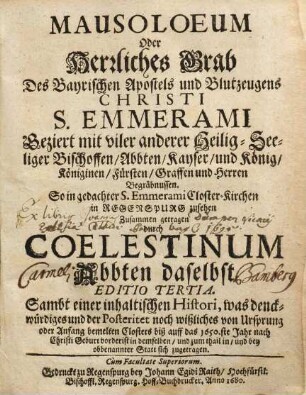 MAUSOLOEUM
Oder
Herzliches Grab
Des Bayrischen Apostels und Blutzeugens
CHRISTI
S. EMMERAMI
Geziert mit viler anderer Heilig-See-
liger Bischoffen/Abbten/Kayser/und König/
Königinen/Fürsten/Graffen und Herren
Begräbnussen.
So in gedachter S. Emmerami Closter-Kirchen
in REGENSPURG zusehen
Zusammen getragen
durch
COELESTINUM
Abbten daselbst.
Bamberg
EDITIO TERTIA.
Sambt einer inhaltischen Histori, was denck-
würdiges und der Posteritet noch wißliches von Ursprung
oder Anfang bemelten Closters biß auff das 1650.ste Jahr nach
Christi Geburt vorderist in demselben/und zum theil in/und bey
obbenannter Statt sich zugetragen.
Cum Facultate Superiorum.
Gedruckt zu Regenspurg bey Johann Egidi Raith/Hochfürstl.
Bischoffl. Regenspurg. Hoff-Buchdrucker, Anno 1680.